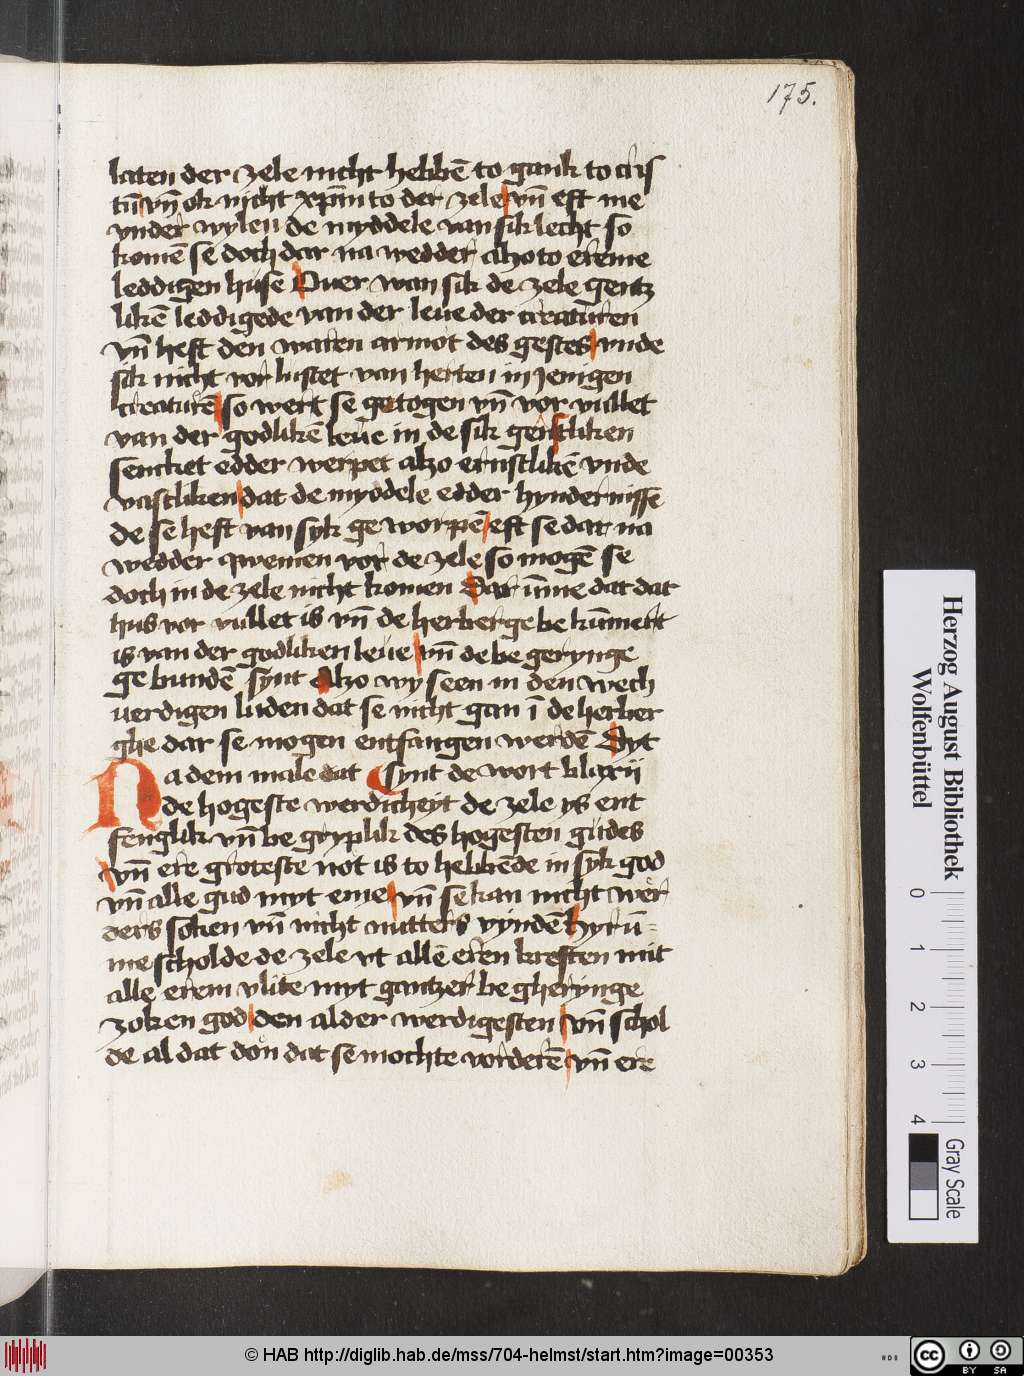 175.
laten der zele nicht hebbē to gank to cris
tū vn̄ ok nicht xp̄m to der zele vn̄ eft me
vnder wylen de myddele van sik lecht so
komē se doch dar na wedder alzo to ereme
leddigen huse Ouer wan sik de zele gentz
likē leddigede van der leue der creaturen
vn̄ heft den waren armot des gestes vnde
sik nicht vor lustet van herten in jenigen
creaturē so wert se getogen vn̄ vor vullet
van der godlikē leue in de sik genstliken
sencket edder werpet alzo ernstlikē vnde
vastliken dat de myddele edder hyndernissē
de se heft van syk ge worpē eft se dar na
wedder qwemen vor de zele so mogē se
doch in de zele nicht komen Dar ūme dat dat
hus vor vullet is vn̄ de herberge be kūmert
is van der godliken leue vn̄ de be gerynge
ge bundē synt Alzo wy seen in den wech
uerdigen luden dat se nicht gan ī de herber
ghe dar se mogen entfangen werdē Dyt
Na dem male dat synt de wort blaxii
de hogeste werdicheyt de zele ys ent
fenglik vn̄ be gryplik des hogesten gudes
vn̄ ere groteste not is to hebbēde in syk god
vn̄ alle gud myt eme vn̄ se kan nicht wer
ders soken vn̄ nicht nutters vyndē hyr ū-
me scholde de zele vt allē eren kreften mit
alle erem vlite myt gantzer be gherynge
zoken god den alder werdigesten vn̄ schol
de al dat don dat se mochte vorderē vn̄ ere
Herzog August Bibliothek
Wolfenbüttel
0 1 2 3 4
Gray Scale
© HAB http://diglib.hab.de/mss/704-helmst/start.htm?image=00353
cc BY SA